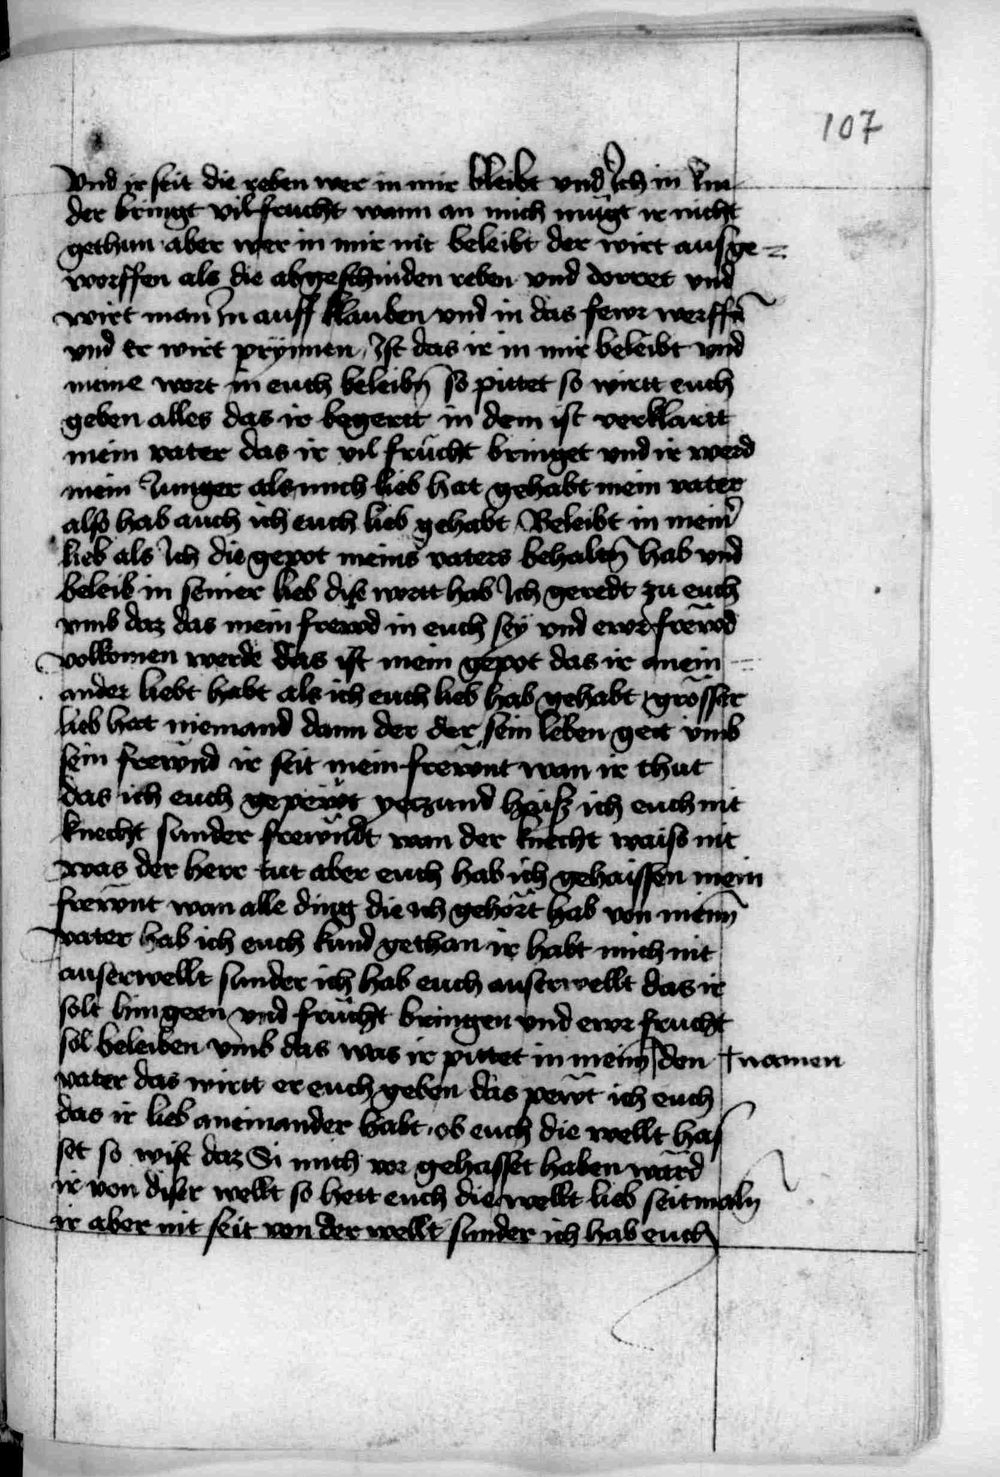 107
Vnd ir seit die reben wer in mir bleibt vnd Ich in Im
der bringt vil frucht wann an mich mügt ir nicht
gethun aber wer in mir nit beleibt der wirt ausge=
worffen als die abgeschniden reben vnd dorret vnd
wirt man In auff klauben vnd in das fewr werffn̄
vnd Er wirt prynnen, Ist das ir in mir beleibt vnd
meine wort in euch beleibn̄ so pittet so wirtt euch
geben alles das ir begertt in dem ist verklartt
mein vater das ir vil frücht bringet vnd ir werd
mein Junger als mich lieb hat gehabt mein vater
also hab auch ich euch lieb gehabt Beleibt in meinˀ
lieb als Ich die gepot meins vaters behaltn̄ hab vnd
beleib in seiner lieb dise wortt hab Ich geredt zu euch
vmb daz das mein frewd in euch sey vnd ewr frewd
volkomen werde das ist mein gepot das ir anein
ander liebt habt als ich euch lieb hab gehabt grösser
lieb hat niemand dann der der sein leben geit vmb
sein frewnd ir seit mein frewnt wan ir thut
das ich euch gepewt yeczund haisz ich euch nit
knecht sunder frewndt wan der knecht waiss nit
was der herr tut aber euch hab ich gehaissen mein
frewnt wan alle ding die ich gehört hab von meinn̄
vater hab ich euch kund gethan ir habt mich nit
auserwellt sunder ich hab euch auserwellt das ir
solt hin geen vnd frücht bringen vnd ewr frucht
sol beleiben vmb das was ir pittet in meinn̄ den † namen
vater das wirtt er euch geben das pewt ich euch
das ir lieb aneinander habt. ob euch die wellt has
set so wist daz Si mich vor gehasset haben ward
ir von diser wellt so hett euch die wellt lieb seitmaln̄
ir aber nit seit von der wellt sunder ich hab euch